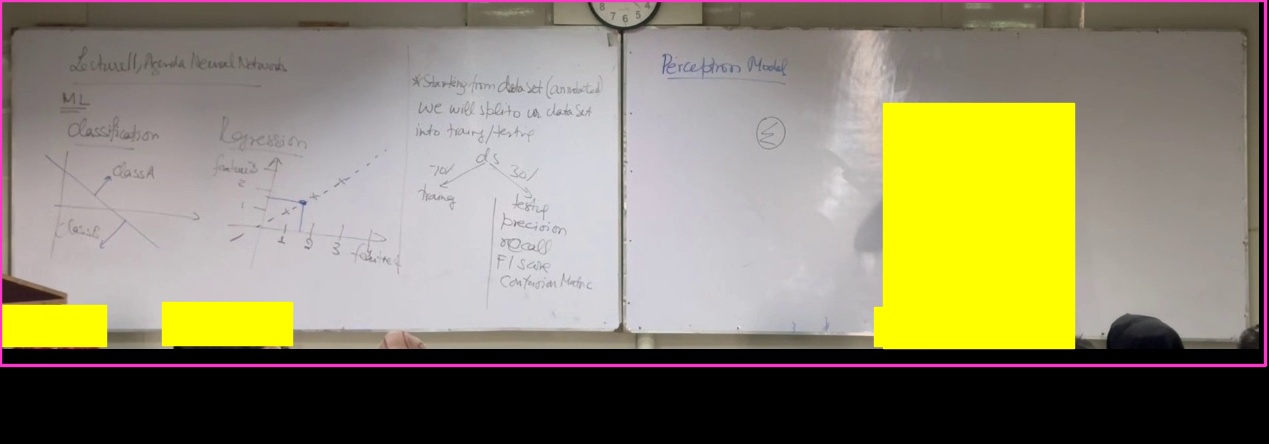 8 7 6 5 4
Lecture11, Agenda Neural Networks
ML
Classification
ClassA
Class
Regression
feature2
2
1
1 2 3 4
feature1
*Starting from dataset (annotated)
We will split our dataset
into training/testing
ds
70%
30%
training
testing
precision
recall
F1 score
Confusion Matrix
Perceptron Model
Σ